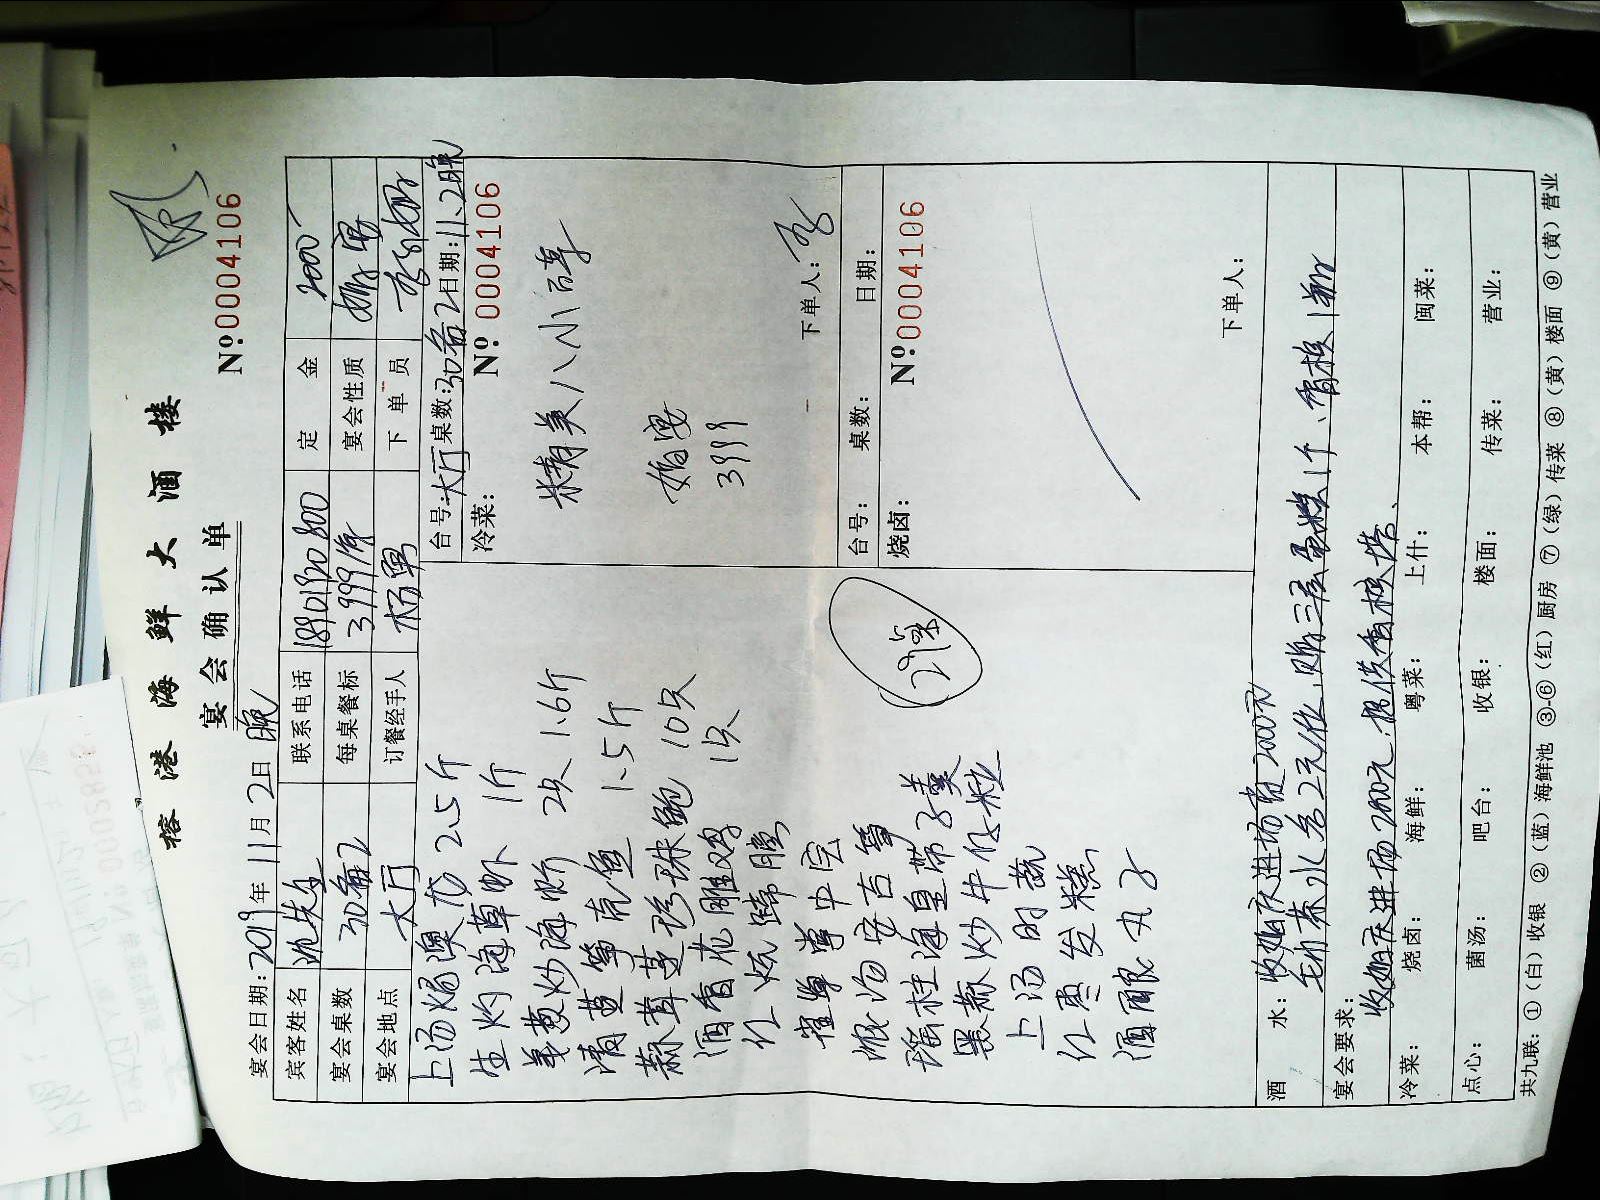 榕港海鲜大酒楼
宴会确认单
№:0004106
宴会日期:2019年11月2日 晚
宾客姓名 沈先生 联系电话 18901920800 定金 2000
宴会桌数 30备2 每桌餐标 3999/席 宴会性质 婚宴
宴会地点 大厅 订餐经手人 杨勇 下单员
上汤焗澳龙 2.5斤
生灼海草虾 1斤
姜葱炒海蟹 2只 1.6斤
清蒸笋壳鱼 1.5斤
蒜蓉蒸珍珠鲍 10只
酒香花雕鸡 1只
红烧蹄膀
浓汤安吉笋
瑶柱海皇带子羹
黑蒜炒牛仔粒
上汤时蔬
红枣发糕
酒酿丸子
台号:大厅 桌数:30备2 日期:11.2晚
冷菜: № 0004106
精美八小碟
婚宴
3999
下单人:
台号: 桌数: 日期:
烧卤: №:0004106
下单人:
酒水:收婚庆进场费2000元
毛巾茶水各2元/位,赠三层蛋糕1个、香槟1瓶
宴会要求:收婚庆进场2000元,提供香槟塔、
冷菜: 烧卤: 海鲜: 粤菜: 上什: 本帮: 闽菜:
点心: 菌汤: 吧台: 收银: 楼面: 传菜: 营业:
共九联:①(白)收银 ②(蓝)海鲜池 ③-⑥(红)厨房 ⑦(绿)传菜 ⑧(黄)楼面 ⑨(黄)营业